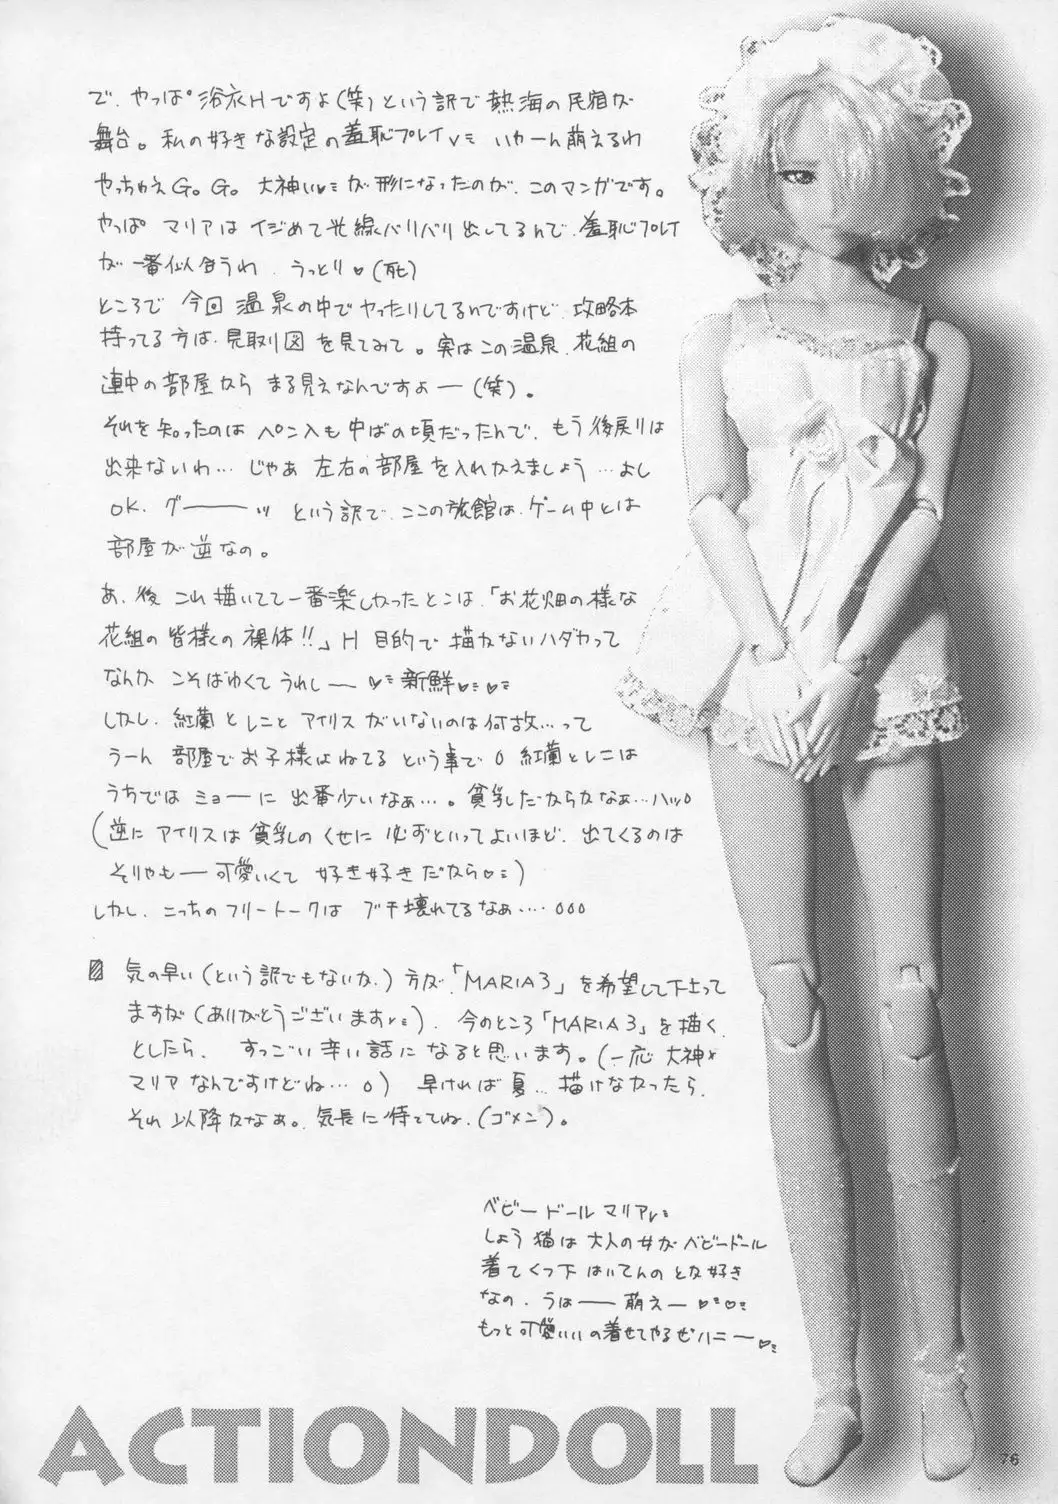 で、やっぱ浴衣Hですよ(笑)という訳で熱海の民宿が
舞台。私の好きな設定の羞恥プレイv いやーん萌えるわ
やっちゃえG。G。大神い♡が形になったのが、このマンガです。
やっぱ マリアは イジめて光線バリバリ出してるんで、羞恥プレイ
が一番似合うわ、うっとり♡(死)
ところで 今回 温泉の中でヤったりしてるんですけど、攻略本
持ってる方は、見取り図を見てみて。実はこの温泉、花組の
連中の部屋から まる見えなんですよー(笑)。
それを知ったのは ペン入も中ばの頃だったんで、もう後戻りは
出来ないわ…じゃあ 左右の部屋を入れかえましょう…よし
OK、グーーッ という訳で、ここの旅館は、ゲーム中とは
部屋が逆なの。
あ、後 これ描いてて一番楽しかったとこは、「お花畑の様な
花組の皆様の裸体!!」H目的で描かないハダカって
なんか こそばゆくてうれしー♡新鮮♡♡
しかし、紅蘭とレニとアイリスがいないのは何故…って
うーん 部屋でお子様はねてる という事で。紅蘭とレニは
うちでは ミョーに 出番少いなぁ…。貧乳だからかなぁ…ハッ。
(逆に アイリスは貧乳の くせに 必ずといってよいほど、出てくるのは
そりゃもー可愛いくて 好き好きだから♡)
しかし、こっちのフリートークは ブチ壊れてるなぁ……。。。
気の早い(という訳でもないか、)方が「MARIA3」を希望して下さって
ますが(ありがとうございますv)、今のところ「MARIA3」を描く
としたら、すっごい辛い話に なると思います。(一応 大神×
マリア なんですけどね…。) 早ければ夏…描けなかったら、
それ以降かなぁ。気長に待っててね、(ゴメン)。
ベビードールマリアv
しょう猫は 大人の女が ベビードール
着て くつ下 はいてんの とか好き
なの、うはー 萌えー♡♡
もっと可愛いいの着せてやるぜハニー♡
ACTIONDOLL
76